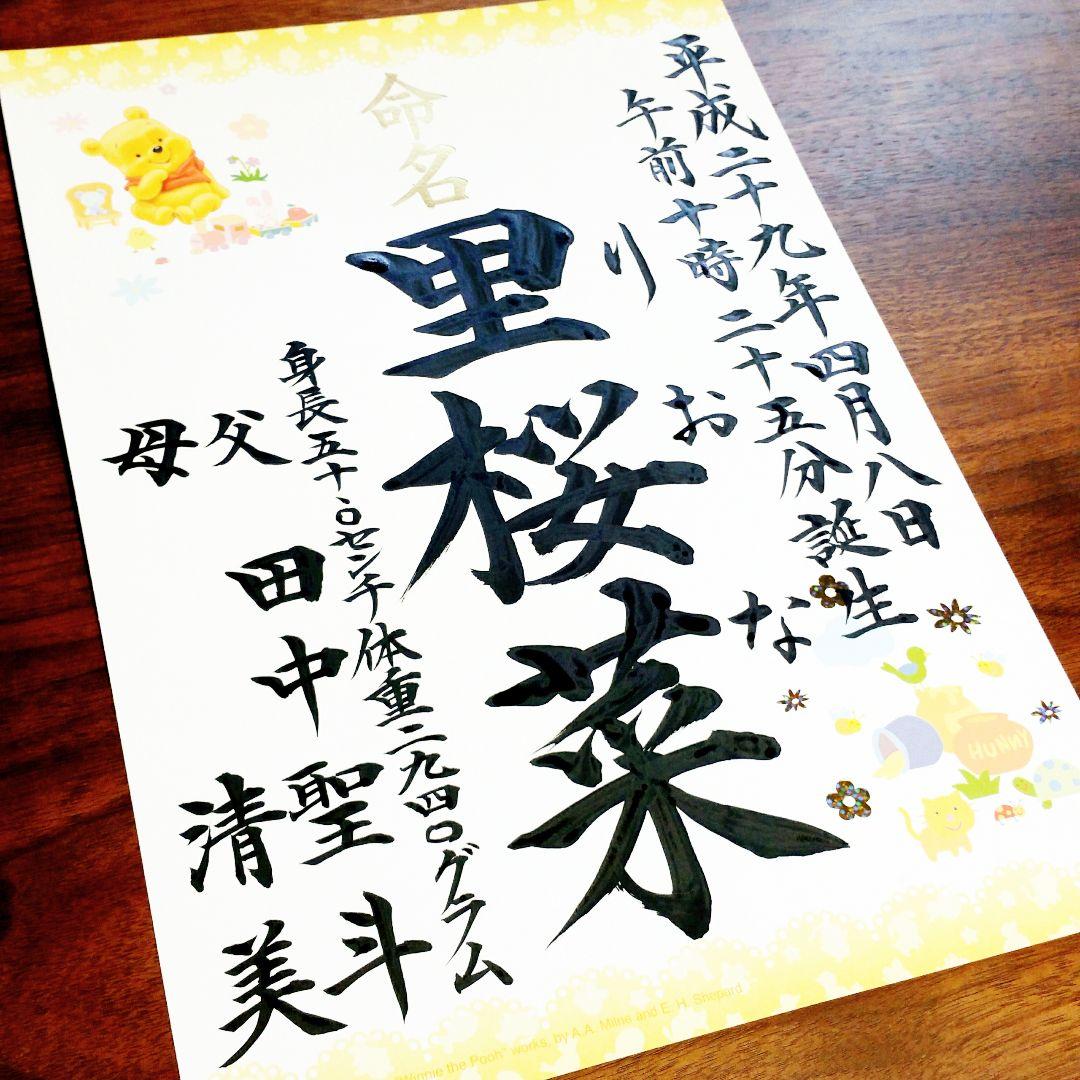 平成二十九年四月八日
午前十時二十五分誕生
命名
りおな
里桜菜
身長五十.〇センチ体重二九四〇グラム
父 田中聖斗
母 清美
HUNNY
"Winnie the Pooh" works, by A.A. Milne and E. H. Shepard